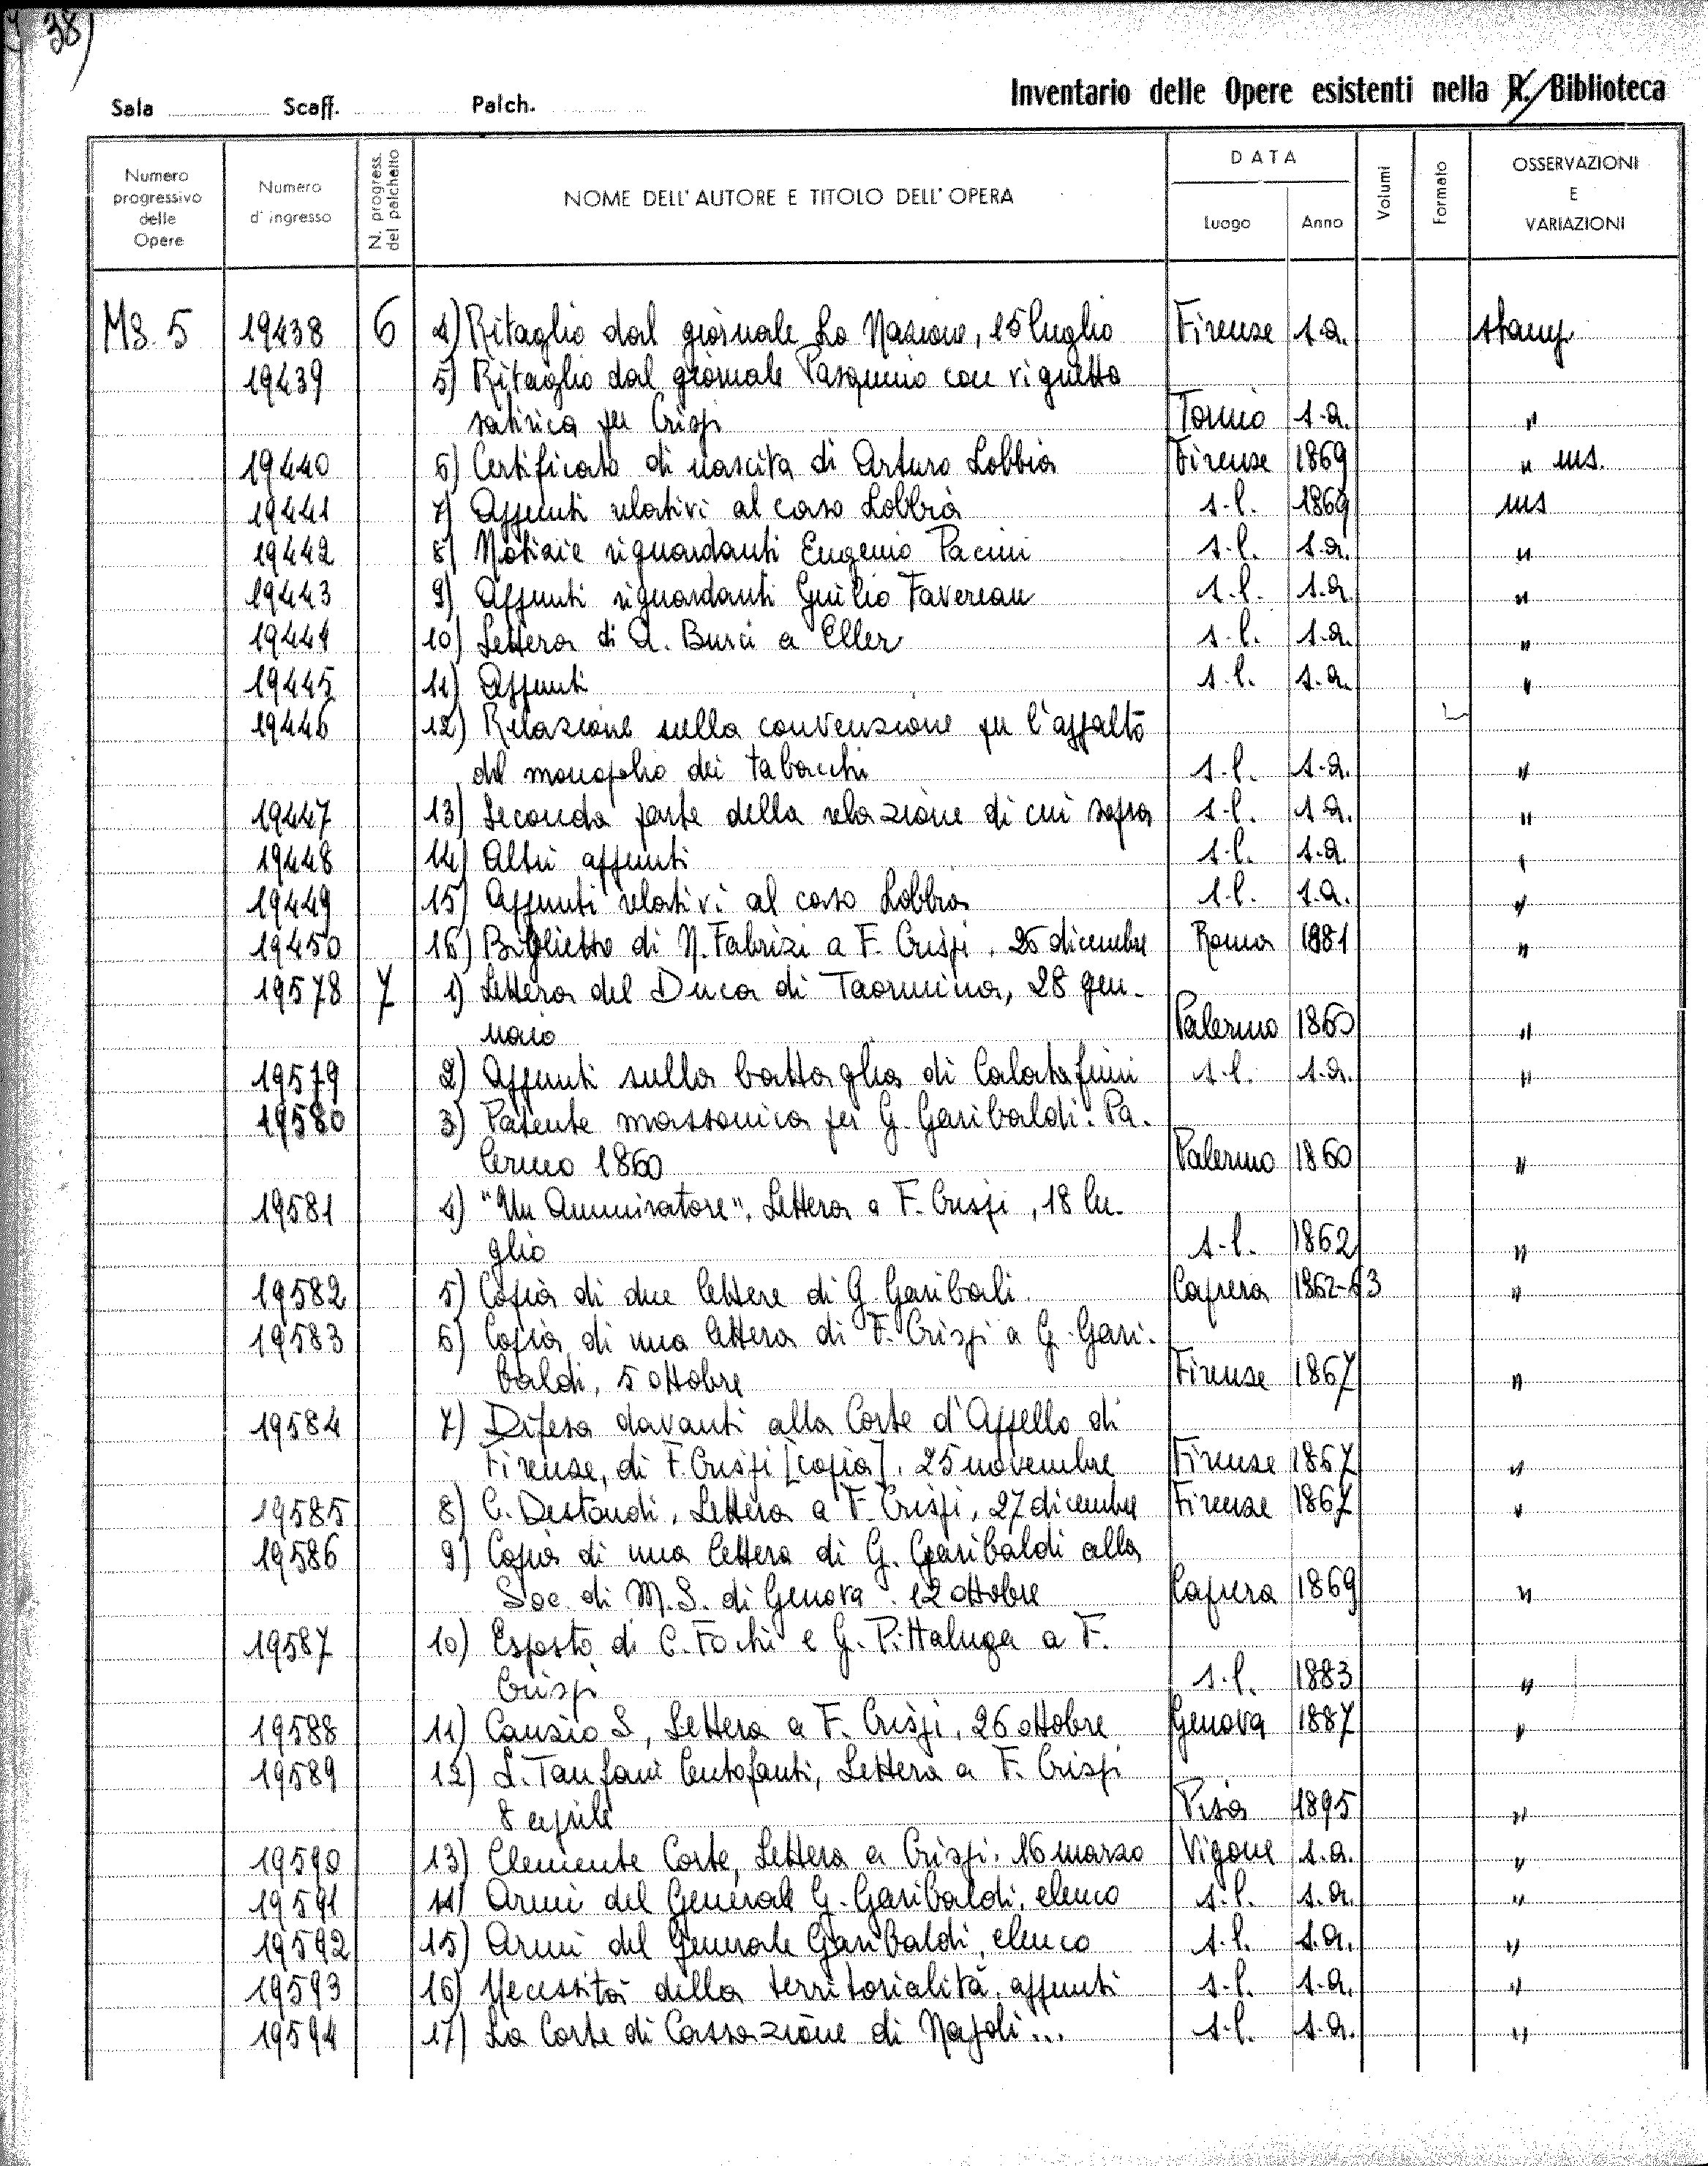 38)
Inventario delle Opere esistenti nella R. Biblioteca
Sala Scaff. Palch.
Numero progressivo delle Opere
Numero d'ingresso
N. progress. del palchetto
NOME DELL'AUTORE E TITOLO DELL'OPERA
DATA
Luogo Anno
Volumi
Formato
OSSERVAZIONI E VARIAZIONI
Ms. 5 19438 6 4) Ritaglio dal giornale La Nazione, 15 luglio Firenze s.a. stamp.
19439 5) Ritaglio dal giornale Pasquino con vignetta
satirica per Crispi Torino s.a. "
19440 6) Certificato di nascita di Arturo Lobbia Firenze 1869 " ms.
19441 7) Appunti relativi al caso Lobbia s.l. 1869 ms
19442 8) Notizie riguardanti Eugenio Pacini s.l. s.a. "
19443 9) Appunti riguardanti Guilio Favereau s.l. s.a. "
19444 10) Lettera di A. Burci a Eller s.l. s.a. "
19445 11) Appunti s.l. s.a. "
19446 12) Relazione sulla convenzione per l'appalto
del monopolio dei tabacchi s.l. s.a. "
19447 13) Seconda parte della relazione di cui sopra s.l. s.a. "
19448 14) Altri appunti s.l. s.a. "
19449 15) Appunti relativi al caso Lobbia s.l. s.a. "
19450 16) Biglietto di N. Fabrizi a F. Crispi. 25 dicembre Roma 1881 "
19578 7 1) Lettera del Duca di Taormina, 28 gen-
naio Palermo 1860 "
19579 2) Appunti sulla battaglia di Calatafimi s.l. s.a. "
19580 3) Patente massonica per G. Garibaldi. Pa-
lermo 1860 Palermo 1860 "
19581 4) "Un Ammiratore". Lettera a F. Crispi, 18 lu-
glio s.l. 1862 "
19582 5) Copia di due lettere di G. Garibali. Caprera 1862-63 "
19583 6) Copia di una lettera di F. Crispi a G. Gari-
baldi, 5 ottobre Firenze 1867 "
19584 7) Difesa davanti alla Corte d'Appello di
Firenze, di F. Crispi [copia]. 25 novembre Firenze 1867 "
19585 8) C. Destandi, Lettera a F. Crispi, 27 dicembre Firenze 1867 "
19586 9) Copia di una lettera di G. Garibaldi alla
Soc. di M.S. di Genova. 12 ottobre Caprera 1869 "
19587 10) Esposto di C. Fochi e G. Pittaluga a F.
Crispi s.l. 1883 "
19588 11) Canzio S, Lettera a F. Crispi, 26 ottobre Genova 1887 "
19589 12) L. Tanfani Centofanti, Lettera a F. Crispi
8 aprile Pisa 1895 "
19590 13) Clemente Corte, Lettera a Crispi. 16 marzo Vigone s.a. "
19591 14) Armi del Generale G. Garibaldi, elenco s.l. s.a. "
19592 15) Armi del Generale Garibaldi, elenco s.l. s.a. "
19593 16) Necessità della territorialità, appunti s.l. s.a. "
19594 17) La Corte di Cassazione di Napoli... s.l. s.a. "